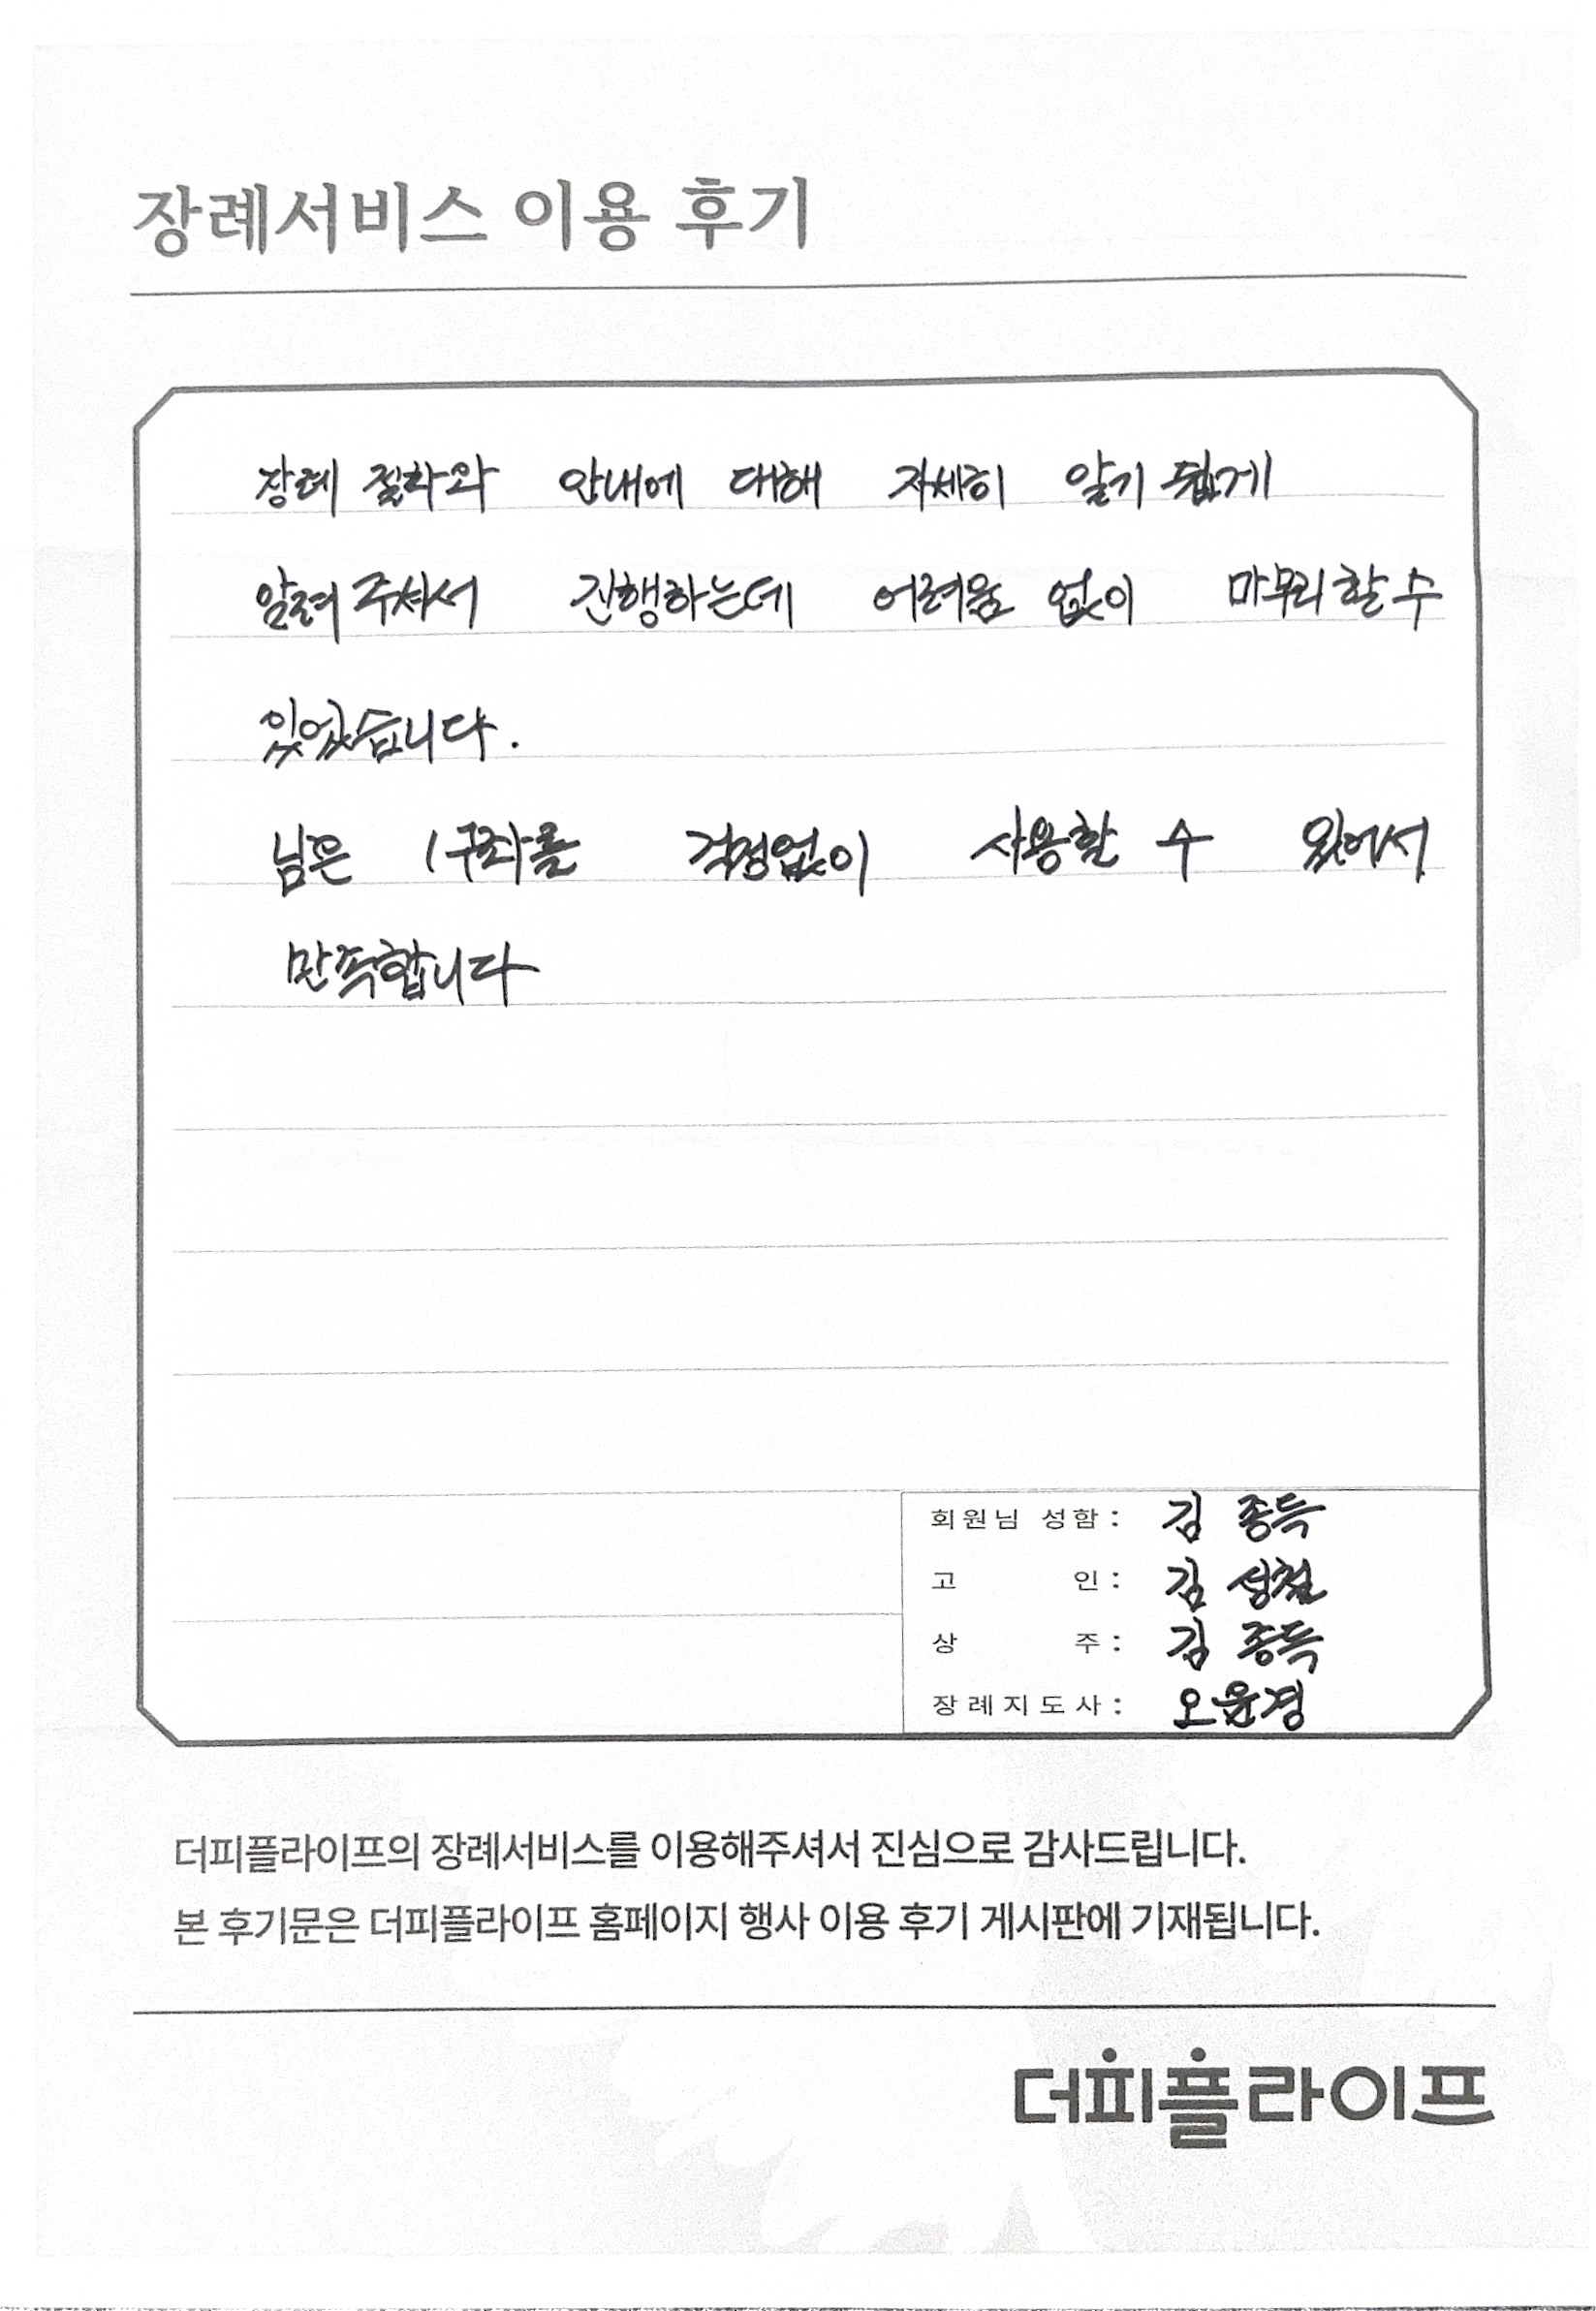 장례서비스 이용 후기
장례 절차와 안내에 대해 자세히 알기 쉽게
알려 주셔서 진행하는데 어려움 없이 마무리할 수
있었습니다.
남은 1구좌를 걱정없이 사용할 수 있어서
만족합니다
회원님 성함 : 김 종득
고 인 : 김 성철
상 주 : 김 종득
장례지도사 : 오윤경
더피플라이프의 장례서비스를 이용해주셔서 진심으로 감사드립니다.
본 후기문은 더피플라이프 홈페이지 행사 이용 후기 게시판에 기재됩니다.
더피플라이프